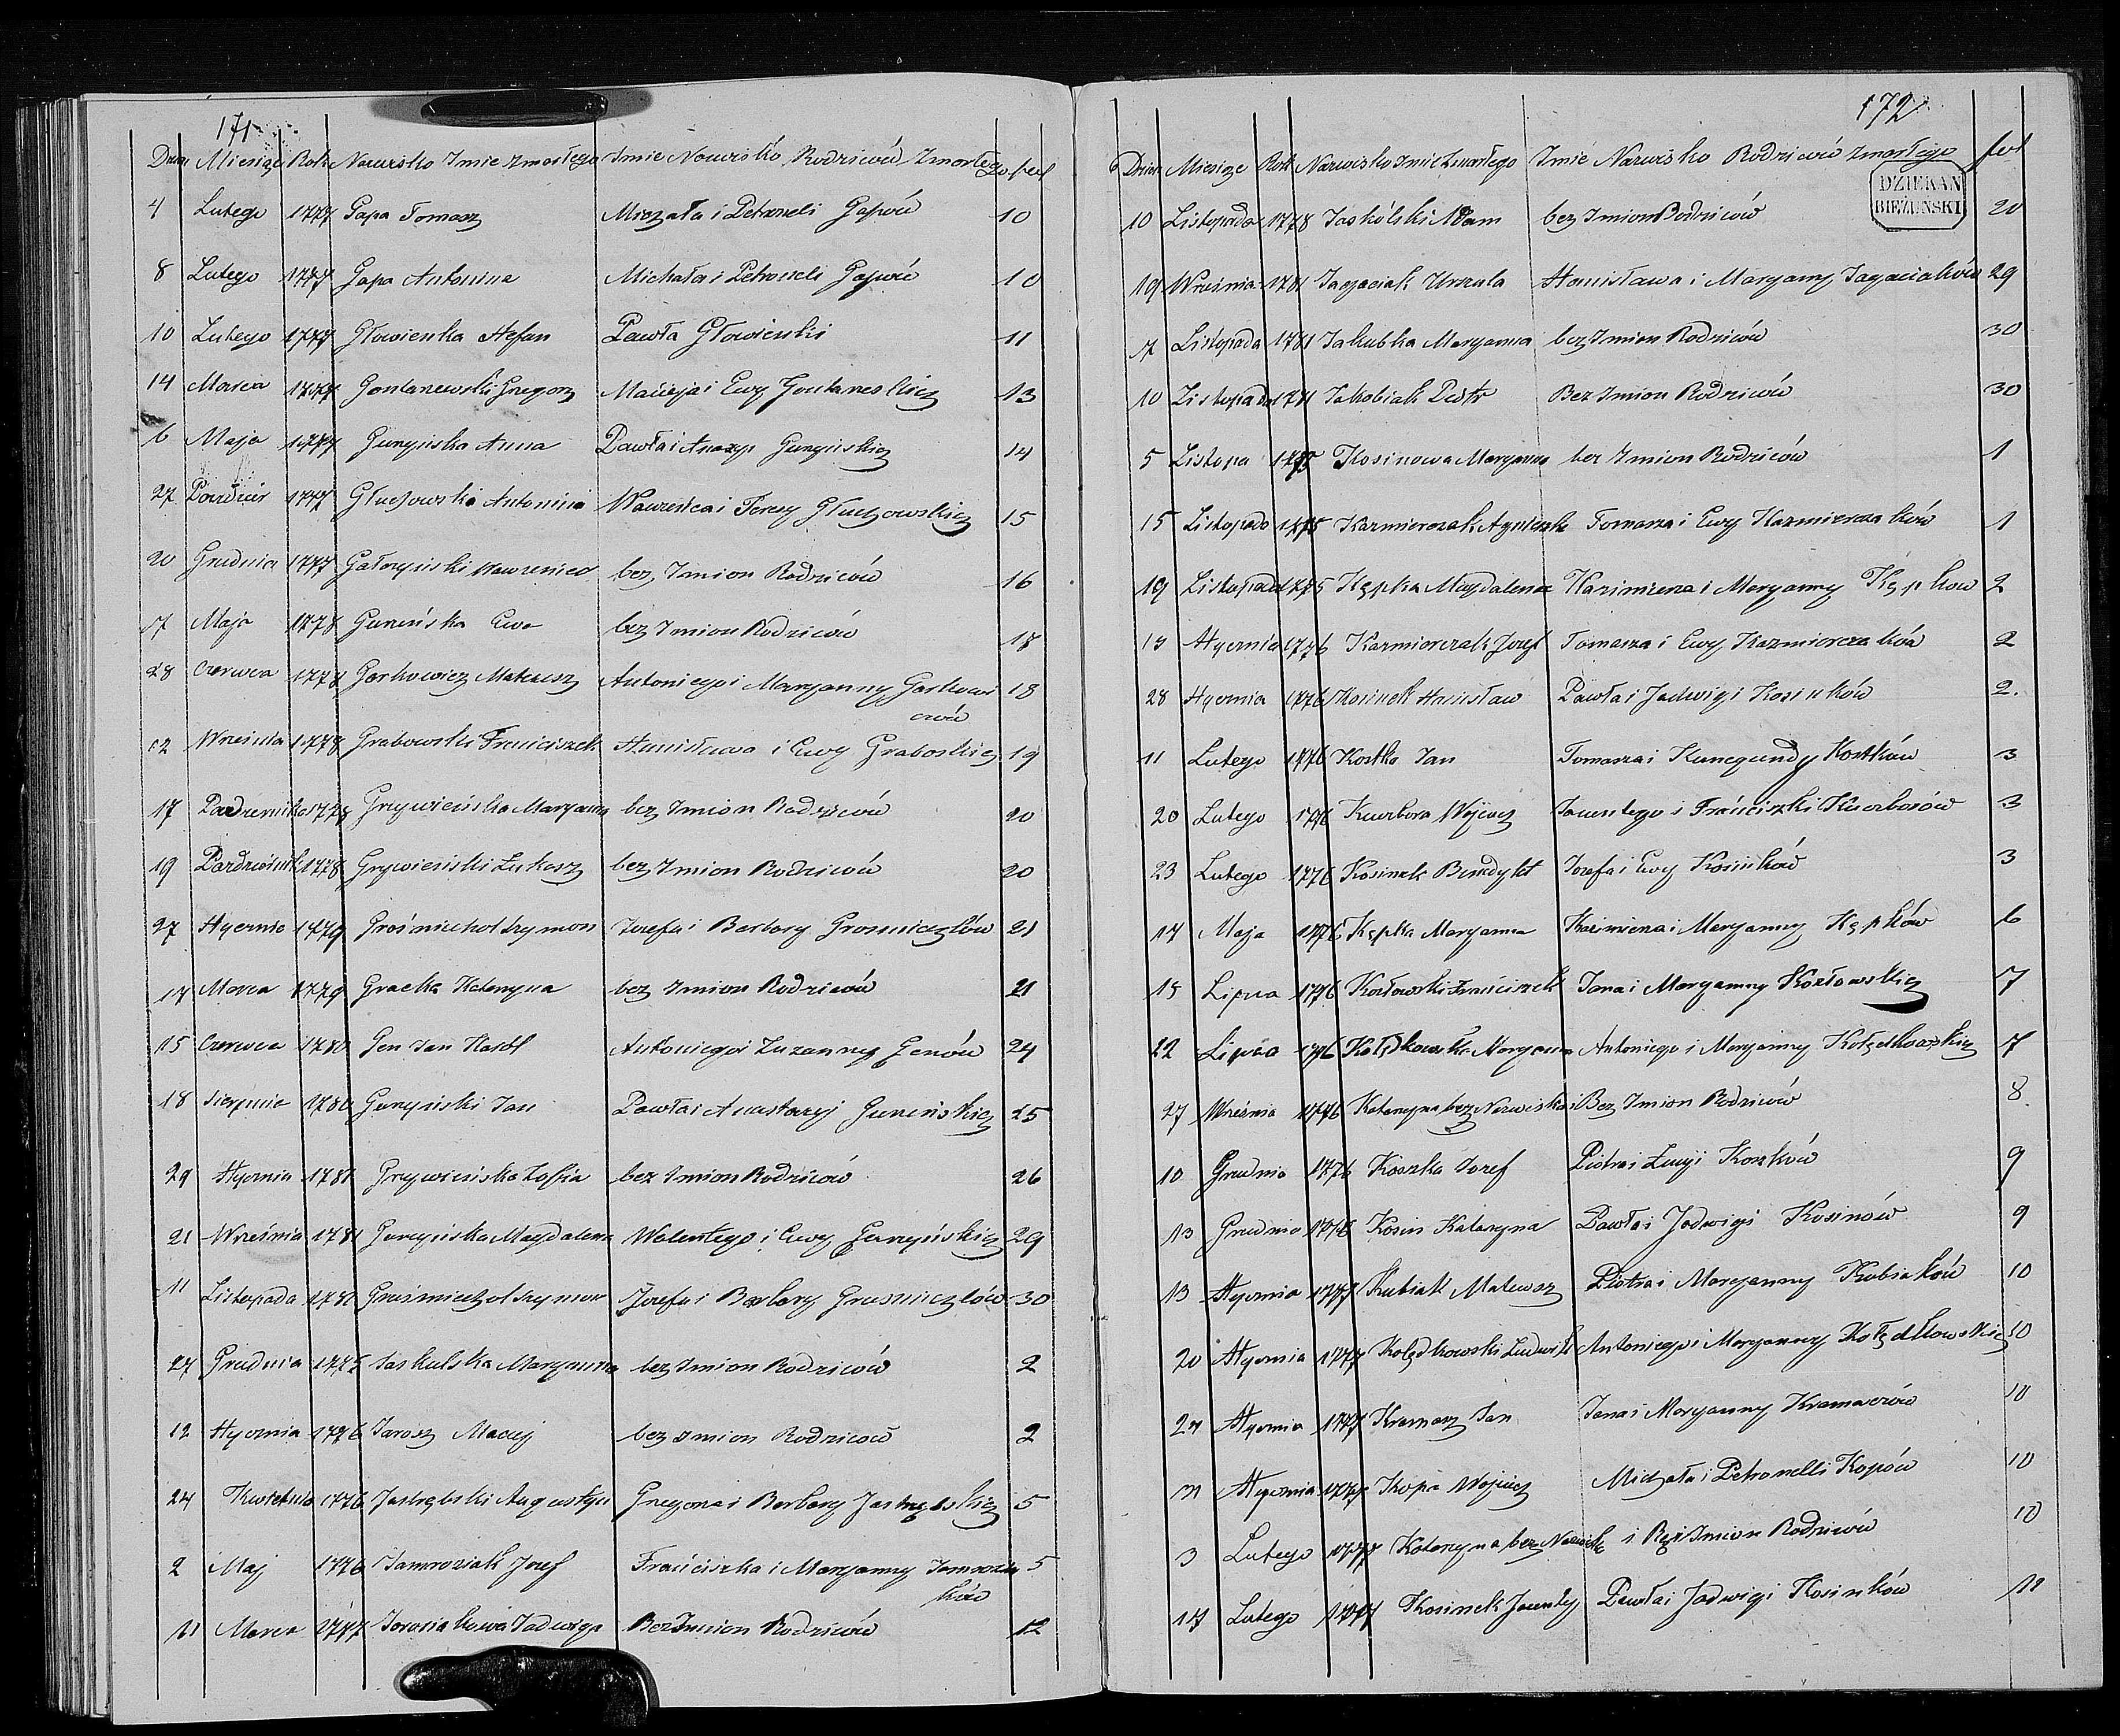 171
Dzień Miesiąc Rok Nazwisko Imie zmarłego Imie Nazwisko Rodziców Zmarłego fol
4 Lutego 1777 Gapa Tomasz Miczała i Petroneli Gapów 10
8 Lutego 1777 Gapa Antonina Michała i Petroneli Gapów 10
10 Lutego 1777 Głowienka Stefan Pawła Głowienki 11
14 Marca 1777 Gontarewski Gregorz Macieja i Ewy Gontareskich 13
6 Maja 1777 Gurzyńska Anna Pawła i Anazyi Gurzyńskich 14
27 Paździer 1777 Głuchowska Antonina Wawrzeńca i Teresy Głuchowskich 15
20 Grudnia 1777 Gałczyński Wawrzeniec bez Imion Rodziców 16
7 Maja 1778 Guzińska Ewa bez Imion Rodziców 18
28 Czerwca 1778 Garkowicz Mateusz Antoniego i Maryanny Garkowi 18
czów
12 Wrześnla 1778 Grabowski Franciszek Stanisława i Ewy Graboskich 19
17 Padziernika 1778 Grzywieńska Maryanna bez Imion Rodziców 20
19 Pazdziernik 1778 Grzywieński Łukasz bez Imion Rodziców 20
27 Stycznia 1779 Grośniechoł Szymon Jozefa i Barbary Grosniczłów 21
17 Marca 1779 Gracka Katarzyna bez Imion Rodziców 21
15 Czerwca 1780 Gen Jan Karol Antoniego i Zuzanny Genów 24
18 Sierpnia 1780 Gurzyński Jan Pawła i Anastazyi Guzińskich 25
29 Stycznia 1781 Grzywieńska Zofia bez Imion Rodziców 26
21 Września 1781 Gurzyńska Magdalena Walentego i Ewy Gurzyńskich 29
11 Listopada 1781 Grośniechoł Szymon Jozefa i Barbary Grosniczłów 30
27 Grudnia 1775 Jaskulska Maryanna bez Imion Rodziców 2
12 Stycznia 1776 Jarosz Maciej bez Imion Rodziców 2
24 Kwietnia 1776 Jastrębski Augustyn Gregorza i Barbary Jastrębskich 5
2 Maj 1776 Jamroziak Jozef Franciszka i Maryanny Jamrozia 5
ków
11 Marca 1777 Jorosiakowa Jadwiga Bez Imion Rodziców 12
172
Dzień Miesiąc Rok Nazwisko Imie Zmarłego Imie Nazwisko Rodziców zmarłego fol
DZIEKAN
BIEŻUŃSKI
10 Listopada 1778 Jaskólski Adam bez Imion Rodziców 20
19 Września 1781 Jagaciak Urszula Stanisława i Maryanny Jagaciaków 29
7 Listopada 1781 Jakubka Maryanna bez Imion Rodziców 30
10 Listopada 1781 Jakobiak Piotr Bez Imion Rodziców 30
5 Listopa 1775 Kosinowa Maryanna bez Imion Rodziców 1
15 Listopada 1775 Kazmierczak Agnieszk Tomasza i Ewy Kazmierczaków 1
19 Listopada 1775 Kępka Magdalena Kazimierza i Maryanny Kępkow 2
13 Stycznia 1776 Kazmierczak Jozef Tomasza i Ewy Kazmierczaków 2
28 Stycznia 1776 Kosinek Stanisław Pawła i Jadwigi Kosinków 2.
11 Lutego 1776 Kostka Jan Tomasza i Kunegundy Kostków 3
20 Lutego 1776 Kucabora Wojciech Jacentego i Franciszki Kucaborów 3
23 Lutego 1776 Kosinek Benedykt Jozefa i Ewy Kosinków 3
17 Maja 1776 Kępka Maryanna Kazimierza i Maryanny Kępków 6
15 Lipca 1776 Kozłowski Franciszek Jana i Maryanny Kozłowskich 7
22 Lipca 1776 Kolędkowska Maryanna Antoniego i Maryanny Kolędkowskich 7
27 Września 1776 Katarzyna bez Nazwiska i Bez Imion Rodziców 8
10 Grudnia 1776 Koszka Jozef Piotra i Łucyi Koszków 9
13 Grudnia 1776 Kosin Katarzyna Pawła i Jadwigi Kosinów 9
13 Stycznia 1777 Kubiak Mateusz Piotra i Maryanny Kubiaków 10
20 Stycznia 1777 Kolędkowski Ludwik Antoniego i Maryanny Kolędkowskich 10
27 Stycznia 1777 Kramarz Jan Jana i Maryanny Kramarzów 10
31 Stycznia 1777 Kopa Wojciech Michała i Petronelli Kopów 10
3 Lutego 1777 Katarzyna bez Nazwiska i Bez Imion Rodziców 10
17 Lutego 1777 Kosinek Jacenty Pawła i Jadwigi Kosinków 11